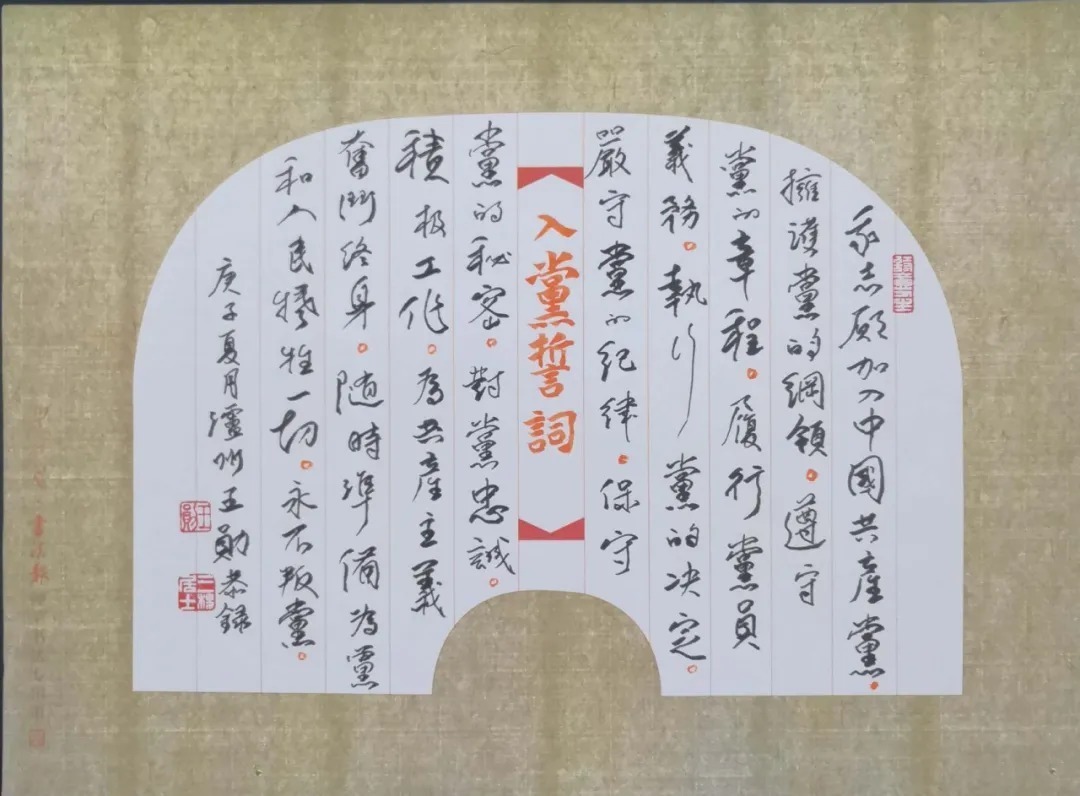 我志願加入中國共産黨。
擁護黨的綱領。遵守
黨的章程。履行黨員
義務。執行黨的决定。
嚴守黨的紀律。保守
入黨誓詞
黨的秘密。對黨忠誠。
積极工作。為共産主義
奮鬥終身。随時準備為黨
和人民犧牲一切。永不叛黨。
庚子夏月瀘州王勛恭録
王勛
書法報